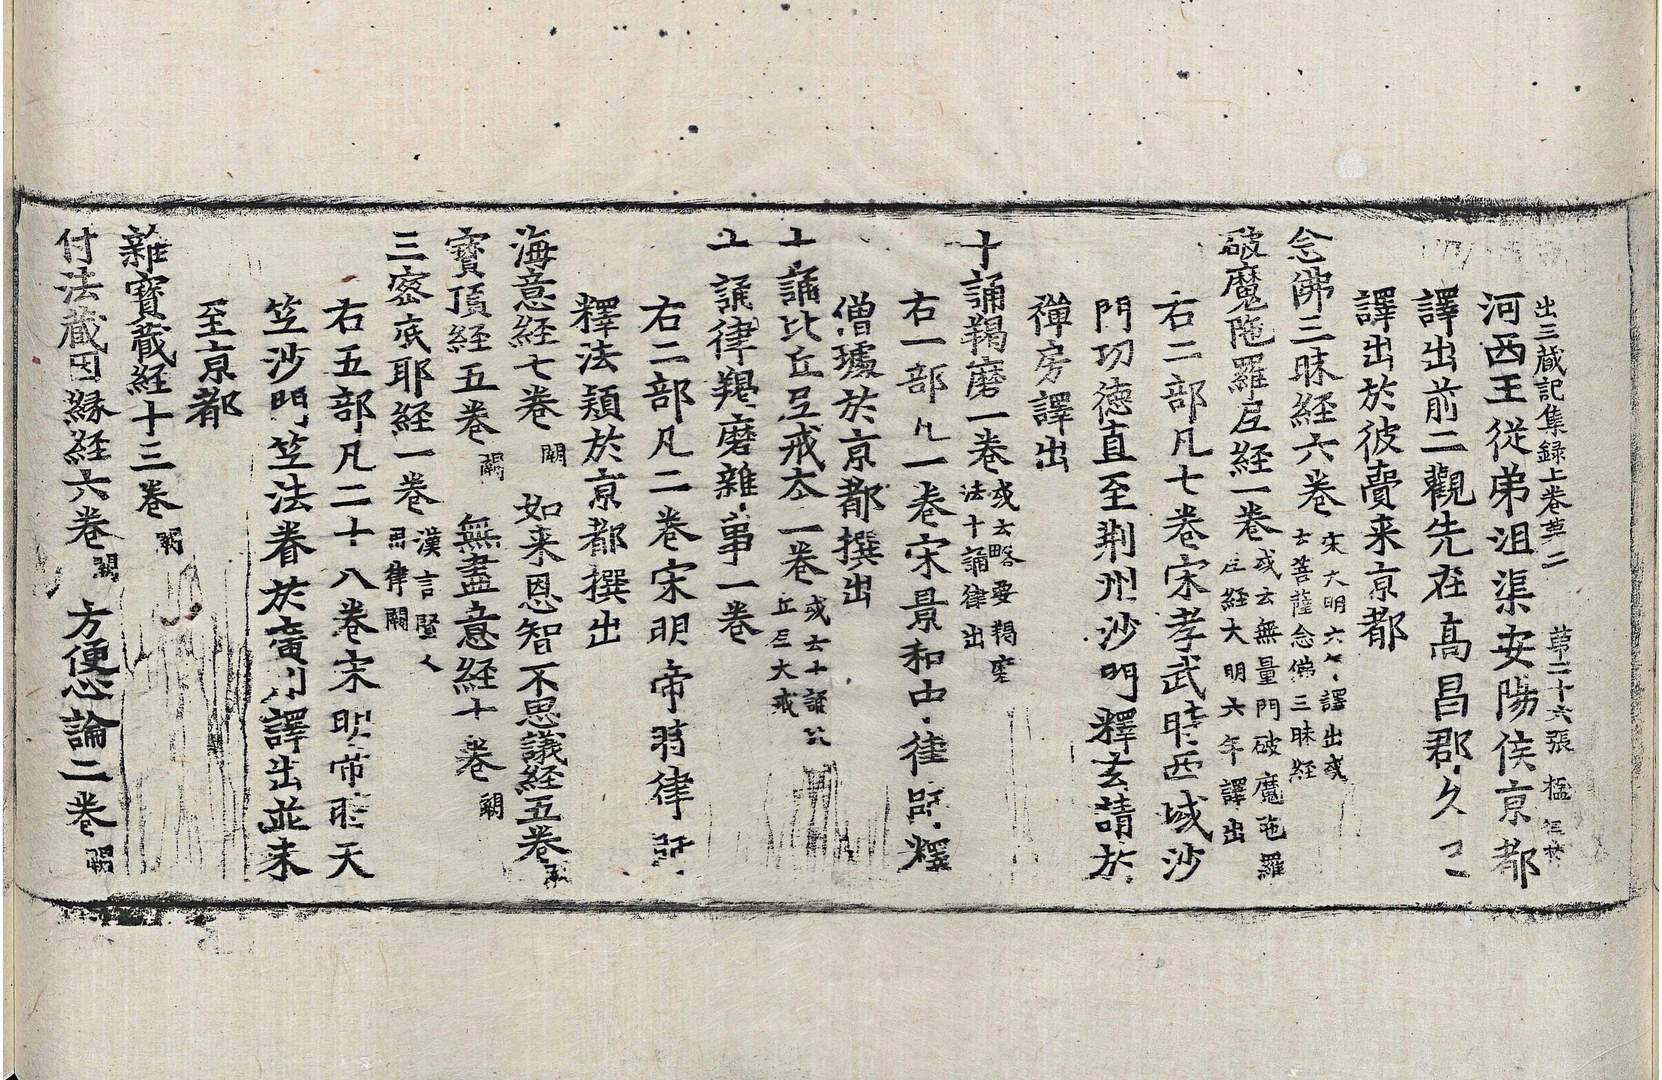 出三蔵記集録上卷苐二　苐二十六張　楹
河西王從弟沮渠安陽侯京都
譯出前二觀先在高昌郡久已
譯出於彼賷来京都
念佛三昧経六卷 宋大明六年譯出或云菩薩念佛三昧経
破魔陁羅尼経一卷 或云無量門破魔陁羅尼経大明六年譯出
右二部凡七卷宋孝武時西域沙
門功徳直至荆州沙門釋玄請於
禪房譯出
十誦羯磨一卷 或云略要羯磨法十誦律出
右一部凡一卷宋景和中律師釋
僧璩於京都撰出
十誦比丘尼戒夲一卷 或云十誦比丘尼大戒
十誦律羯磨雜事一卷
右二部凡二卷宋明帝時律師
釋法頴於京都撰出
海意経七卷 闕　如来恩智不思議経五卷 闕
寳頂経五卷 闕　無盡意経十卷 闕
三宻底耶経一卷 漢言賢人用律闕
右五部凡二十八卷宋明帝時天
竺沙門竺法眷於廣州譯出並未
至京都
雜寳蔵経十三卷 闕
付法蔵因縁経六卷 闕　方便心論二卷 闕